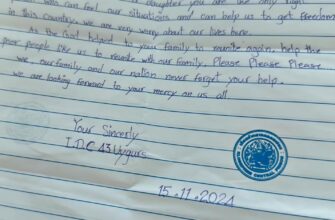 daughter you are the only light
who can feel our situations and can help us to get freedom
in this country. we are very worry about our lives here.
As the God helped to your family to reunite again, help the
poor people like us to reunite with our family. Please Please Please.
we, our family and our nation never forget your help.
we are looking forward to your mercy on us all
Your Sincerly
I.D.C 43 Uygurs
15.11.2024